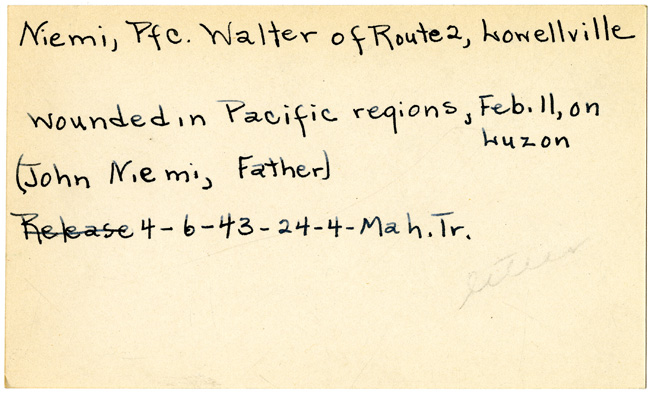 Niemi, Pfc. Walter of Route 2, Lowellville
wounded in Pacific regions, Feb. 11, on
Luzon
(John Niemi, Father)
Release 4-6-43-24-4-Mah. Tr.